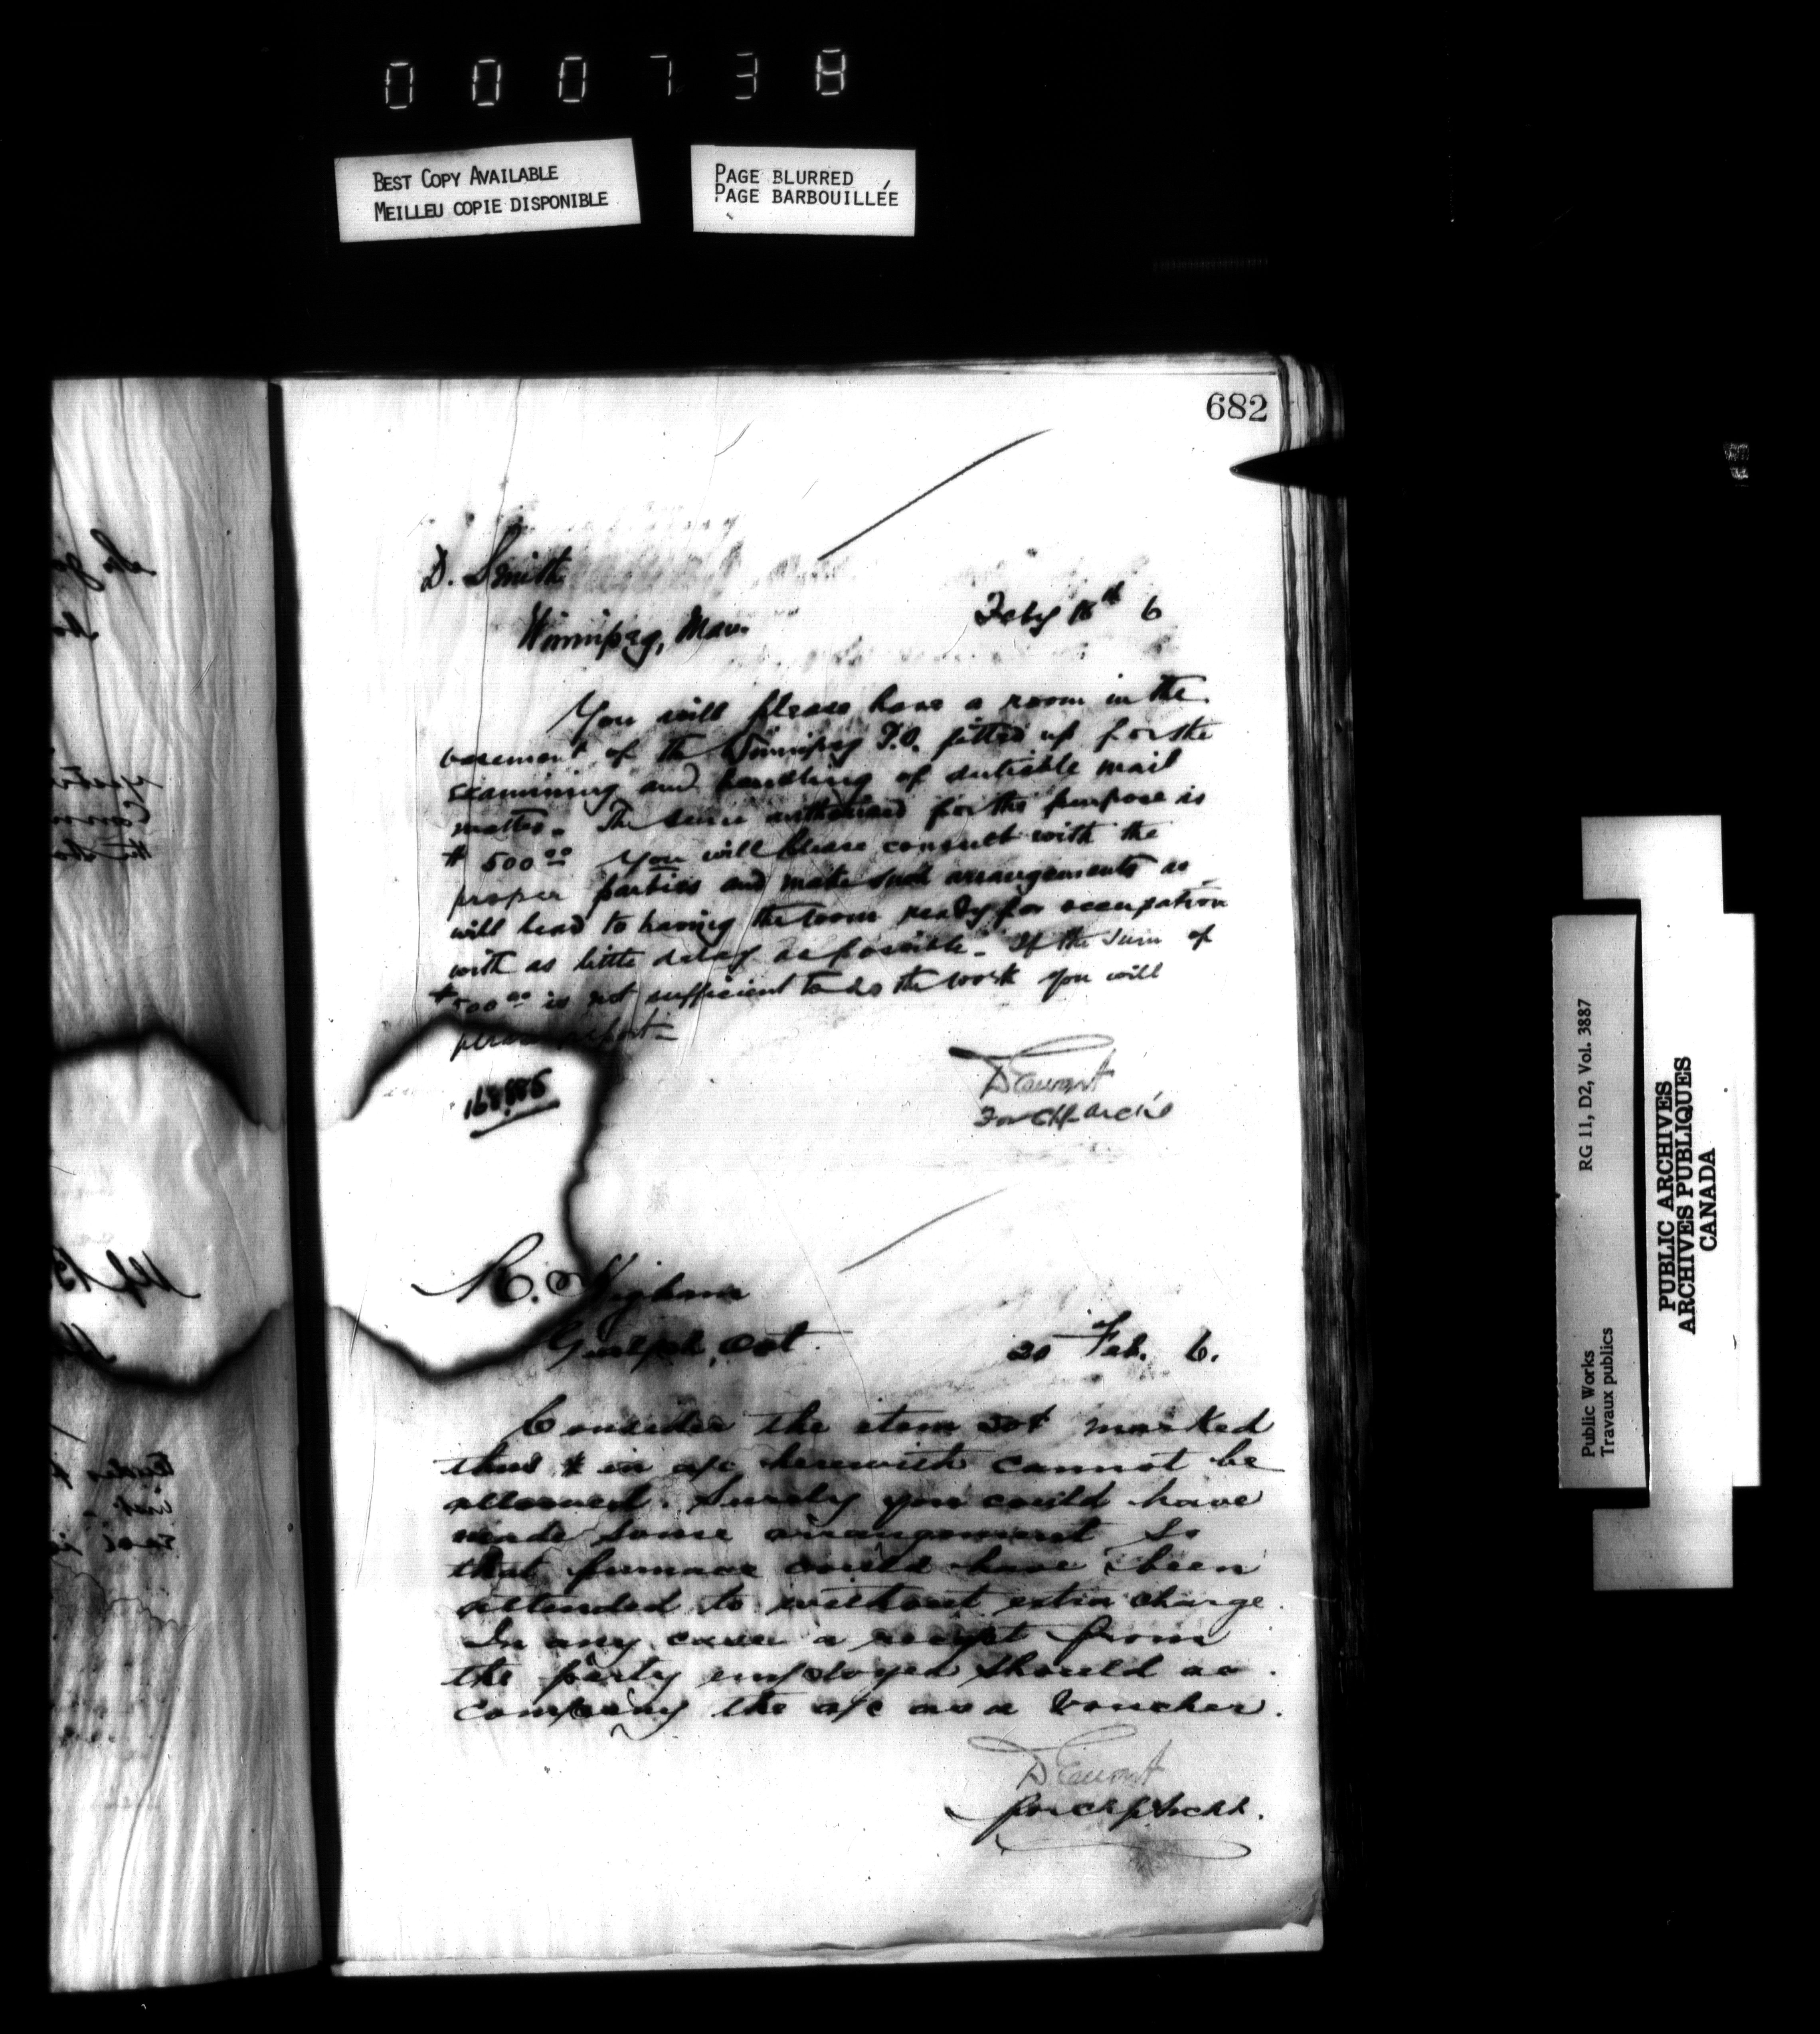 000738
BEST COPY AVAILABLE
MEILLEU COPIE DISPONIBLE
PAGE BLURRED
PAGE BARBOUILLÉE
682
D. Smith
Winnipeg, Man.
Feby 18th 6
You will please have a room in the
basement of the Winnipeg P.O. fitted up for the
examining and handling of dutiable mail
matter. The sum authorised for the purpose is
$500.00 You will please consult with the
proper parties and make such arrangements as
will lead to having the room ready for occupation
with as little delay as possible. If the sum of
$500.00 is not sufficient to do the work you will
please report
D Ewart
For Chf Archt
Higham
Guelph, Ont.
20 Feb. 6.
Consider the item 50¢ marked
thus * in a/c herewith cannot be
allowed. Surely you could have
made some arrangement so
that furnace could have been
attended to without extra charge.
In any case a receipt from
the party employed should ac
company the a/c as a voucher.
D. Ewart
for Chf Archt.
RG 11, D2, Vol. 3887
Public Works
Travaux publics
PUBLIC ARCHIVES
ARCHIVES PUBLIQUES
CANADA